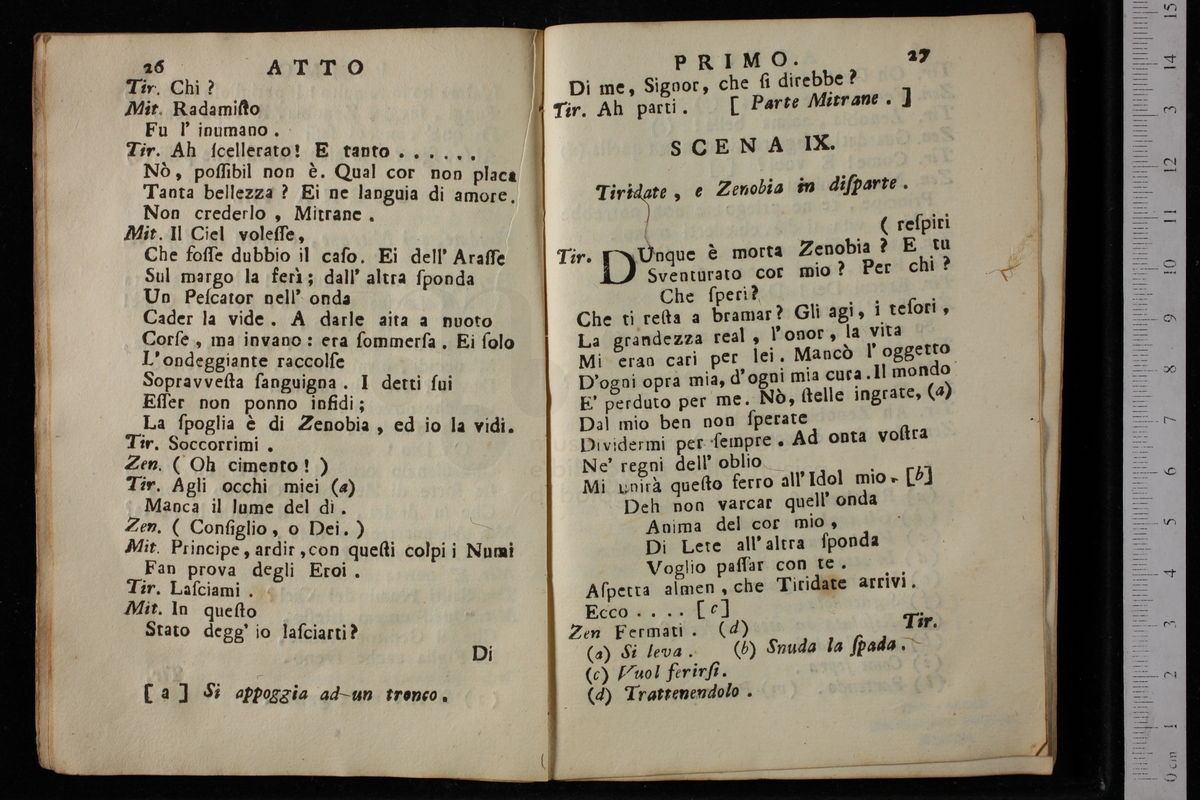 26 ATTO
Tir. Chi ?
Mit. Radamiſto
Fu l' inumano .
Tir. Ah ſcellerato! E tanto . . . . . .
Nò, poſſibil non è. Qual cor non placa
Tanta bellezza ? Ei ne languia di amore.
Non crederlo , Mitrane .
Mit. Il Ciel voleſſe,
Che foſſe dubbio il caſo. Ei dell' Araſſe
Sul margo la ferì; dall' altra ſponda
Un Peſcator nell' onda
Cader la vide . A darle aita a nuoto
Corſe , ma invano : era ſommerſa . Ei ſolo
L'ondeggiante raccolſe
Sopravveſta ſanguigna . I detti ſui
Eſſer non ponno infidi;
La ſpoglia è di Zenobia , ed io la vidi.
Tir. Soccorrimi .
Zen. ( Oh cimento ! )
Tir. Agli occhi miei (a)
Manca il lume del dì .
Zen. ( Conſiglio , o Dei . )
Mit. Principe, ardir ,con queſti colpi i Numi
Fan prova degli Eroi .
Tir. Laſciami .
Mit. In queſto
Stato degg' io laſciarti?
Di
[ a ] Si appoggia ad un tronco.
PRIMO. 27
Di me, Signor, che ſi direbbe ?
Tir. Ah parti . [ Parte Mitrane . ]
SCENA IX.
Tiridate , e Zenobia in diſparte .
( reſpiri
Tir. DUnque è morta Zenobia ? E tu
Sventurato cor mio ? Per chi ?
Che ſperi?
Che ti reſta a bramar? Gli agi, i teſori ,
La grandezza real , l'onor, la vita
Mi eran cari per lei . Mancò l'oggetto
D'ogni opra mia, d'ogni mia cura . Il mondo
E' perduto per me. Nò, ſtelle ingrate, (a)
Dal mio ben non ſperate
Dividermi per ſempre . Ad onta voſtra
Ne' regni dell' oblio
Mi unirà queſto ferro all' Idol mio. [b]
Deh non varcar quell' onda
Anima del cor mio ,
Di Lete all'altra ſponda
Voglio paſſar con te .
Aſpetta almen , che Tiridate arrivi .
Ecco . . . . [c]
Zen Fermati . (d)
Tir.
(a) Si leva . (b) Snuda la ſpada .
(c) Vuol ferirſi.
(d) Trattenendolo .